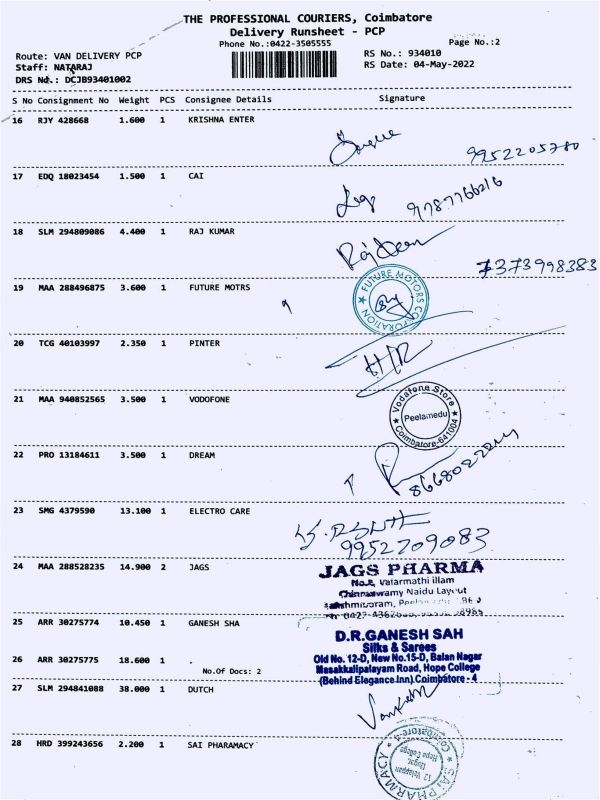 THE PROFESSIONAL COURIERS, Coimbatore
Delivery Runsheet - PCP
Phone No.:0422-3505555
Page No.:2
Route: VAN DELIVERY PCP
RS No.: 934010
Staff: NATARAJ
RS Date: 04-May-2022
DRS No.: DCJB93401002
S No Consignment No Weight PCS Consignee Details Signature
16 RJY 428668 1.600 1 KRISHNA ENTER
9952205780
17 EDQ 18023454 1.500 1 CAI
9787766216
18 SLM 294809086 4.400 1 RAJ KUMAR
7373998383
19 MAA 288496875 3.600 1 FUTURE MOTRS
FUTURE MOTORS CORPORATION
20 TCG 40103997 2.350 1 PINTER
H/R
21 MAA 940852565 3.500 1 VODOFONE
Vodafone Store
Peelamedu
Coimbatore-641004
22 PRO 13184611 3.500 1 DREAM
23 SMG 4379590 13.100 1 ELECTRO CARE
9952209083
24 MAA 288528235 14.900 2 JAGS
JAGS PHARMA
Valarmathi illam
Chinnaswamy Naidu Layout
25 ARR 30275774 10.450 1 GANESH SHA
D.R.GANESH SAH
Silks & Sarees
26 ARR 30275775 18.600 1
No.Of Docs: 2
Old No. 12-D, New No.15-D, Balan Nagar
Masakkalipalayam Road, Hope College
(Behind Elegance Inn) Coimbatore - 4
27 SLM 294841088 38.000 1 DUTCH
28 HRD 399243656 2.200 1 SAI PHARAMACY
SAI PHARMACY
Hope College
Coimbatore